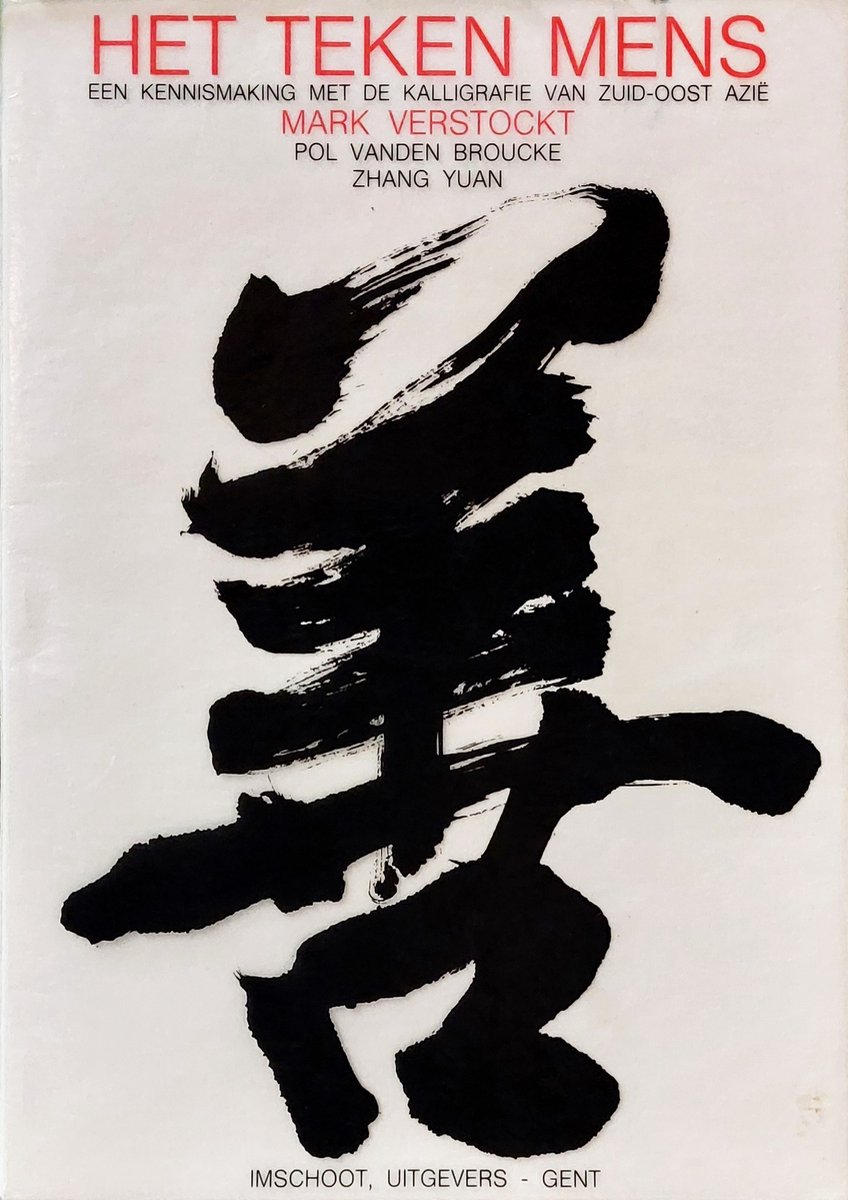 HET TEKEN MENS
EEN KENNISMAKING MET DE KALLIGRAFIE VAN ZUID-OOST AZIË
MARK VERSTOCKT
POL VANDEN BROUCKE
ZHANG YUAN
善
IMSCHOOT, UITGEVERS - GENT